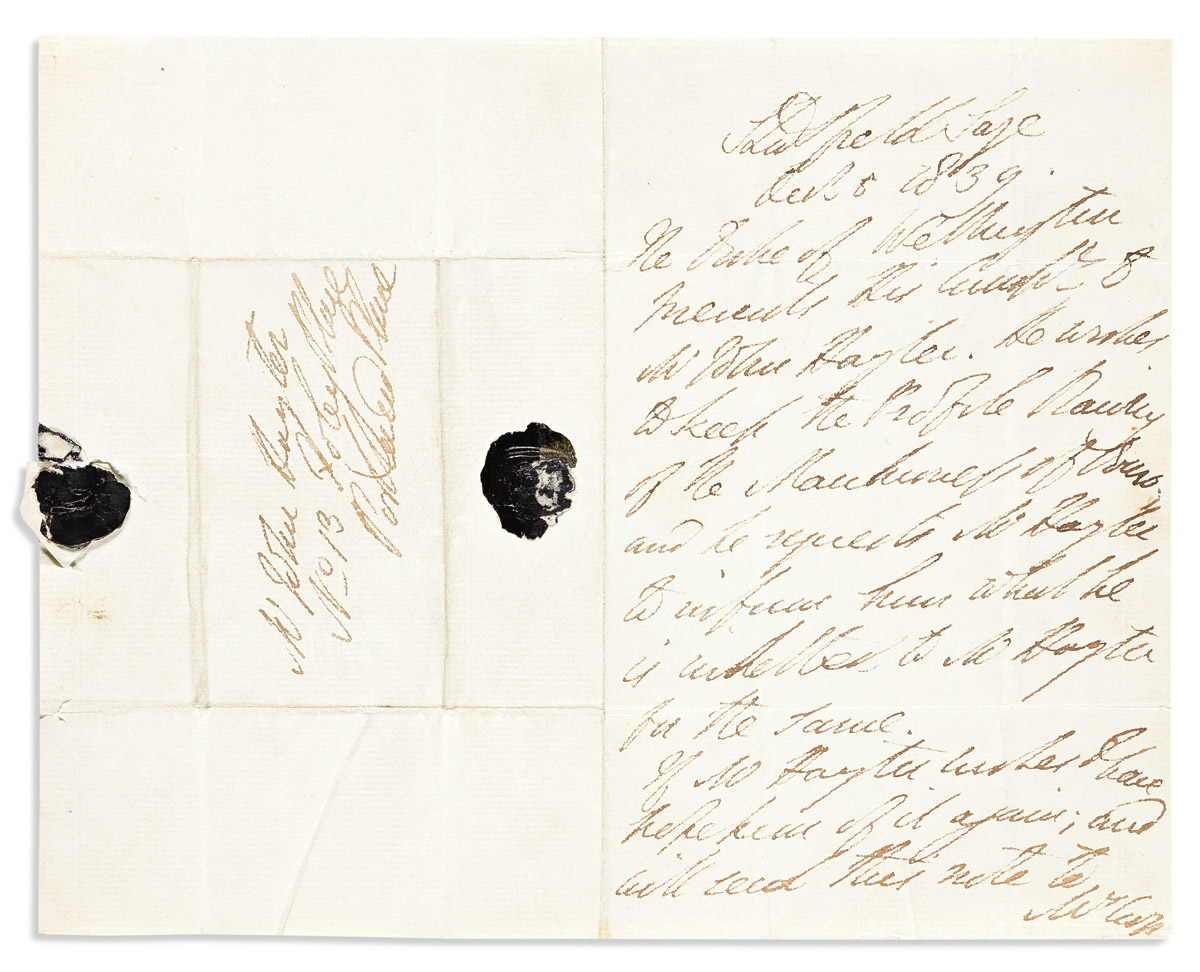 Mr John Hayter
No 13 Foley Place
Portland Place
Stratfield Saye
Oct 5 1839.
The Duke of Wellington
presents His Complts to
Mr John Hayter. He wishes
to keep the Profile Drawing
of the Marchioness of Douro
and he requests Mr Hayter
to inform him what he
is indebted to Mr Hayter
for the same.
If Mr Hayter wishes to have
possession of it again; and
will send this note to